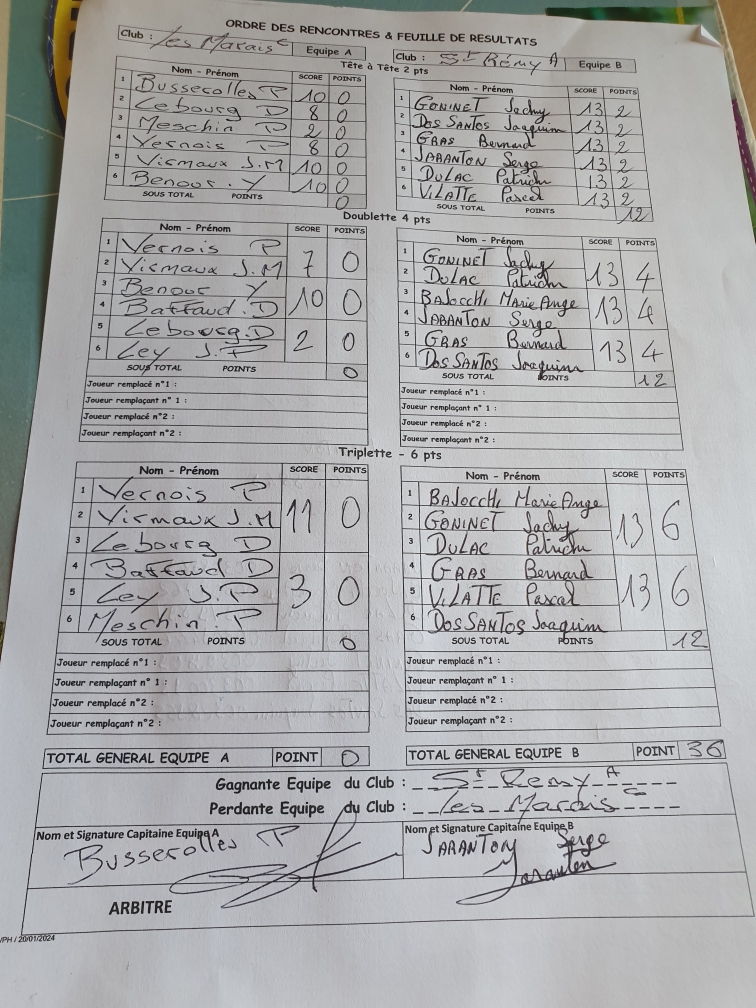 ORDRE DES RENCONTRES & FEUILLE DE RESULTATS
Club : Les Marais C Equipe A
Club : St Rémy A Equipe B
Tête à Tête 2 pts
Nom - Prénom SCORE POINTS
1 Busserolles P 10 0
2 Lebourg D 8 0
3 Meschin P 2 0
4 Vernois P 8 0
5 Vismaux J.M 10 0
6 Benour . Y 10 0
SOUS TOTAL POINTS 0
Nom - Prénom SCORE POINTS
1 GONINET Jacky 13 2
2 DOS SANTOS Joaquim 13 2
3 GRAS Bernard 13 2
4 JARANTON Serge 13 2
5 DULAC Patrick 13 2
6 VILATTE Pascal 13 2
SOUS TOTAL POINTS 12
Doublette 4 pts
Nom - Prénom SCORE POINTS
1 Vernois P
2 Vismaux J.M 7 0
3 Benour Y
4 Battaud . D 10 0
5 Lebourg.D
6 Ley J.P 2 0
SOUS TOTAL POINTS 0
Joueur remplacé n°1 :
Joueur remplaçant n° 1 :
Joueur remplacé n°2 :
Joueur remplaçant n°2 :
Nom - Prénom SCORE POINTS
1 GONINET Jacky
2 DULAC Patrick 13 4
3 BAJOCCHI Marie Ange
4 JARANTON Serge 13 4
5 GRAS Bernard
6 DOS SANTOS Joaquim 13 4
SOUS TOTAL POINTS 12
Joueur remplacé n°1 :
Joueur remplaçant n° 1 :
Joueur remplacé n°2 :
Joueur remplaçant n°2 :
Triplette - 6 pts
Nom - Prénom SCORE POINTS
1 Vernois P
2 Vismaux J.M 11 0
3 Lebourg D
4 Battaud D
5 Ley J.P 3 0
6 Meschin . P
SOUS TOTAL POINTS 0
Joueur remplacé n°1 :
Joueur remplaçant n° 1 :
Joueur remplacé n°2 :
Joueur remplaçant n°2 :
Nom - Prénom SCORE POINTS
1 BAJOCCHI Marie Ange
2 GONINET Jacky 13 6
3 DULAC Patrick
4 GRAS Bernard
5 VILATTE Pascal 13 6
6 DOS SANTOS Joaquim
SOUS TOTAL POINTS 12
Joueur remplacé n°1 :
Joueur remplaçant n° 1 :
Joueur remplacé n°2 :
Joueur remplaçant n°2 :
TOTAL GENERAL EQUIPE A POINT 0
TOTAL GENERAL EQUIPE B POINT 36
Gagnante Equipe du Club : St Remy A
Perdante Equipe du Club : Les Marais C
Nom et Signature Capitaine Equipe A
Busserolles P
Nom et Signature Capitaine Equipe B
JARANTON Serge
Jaranton
ARBITRE
/PH / 20/01/2024